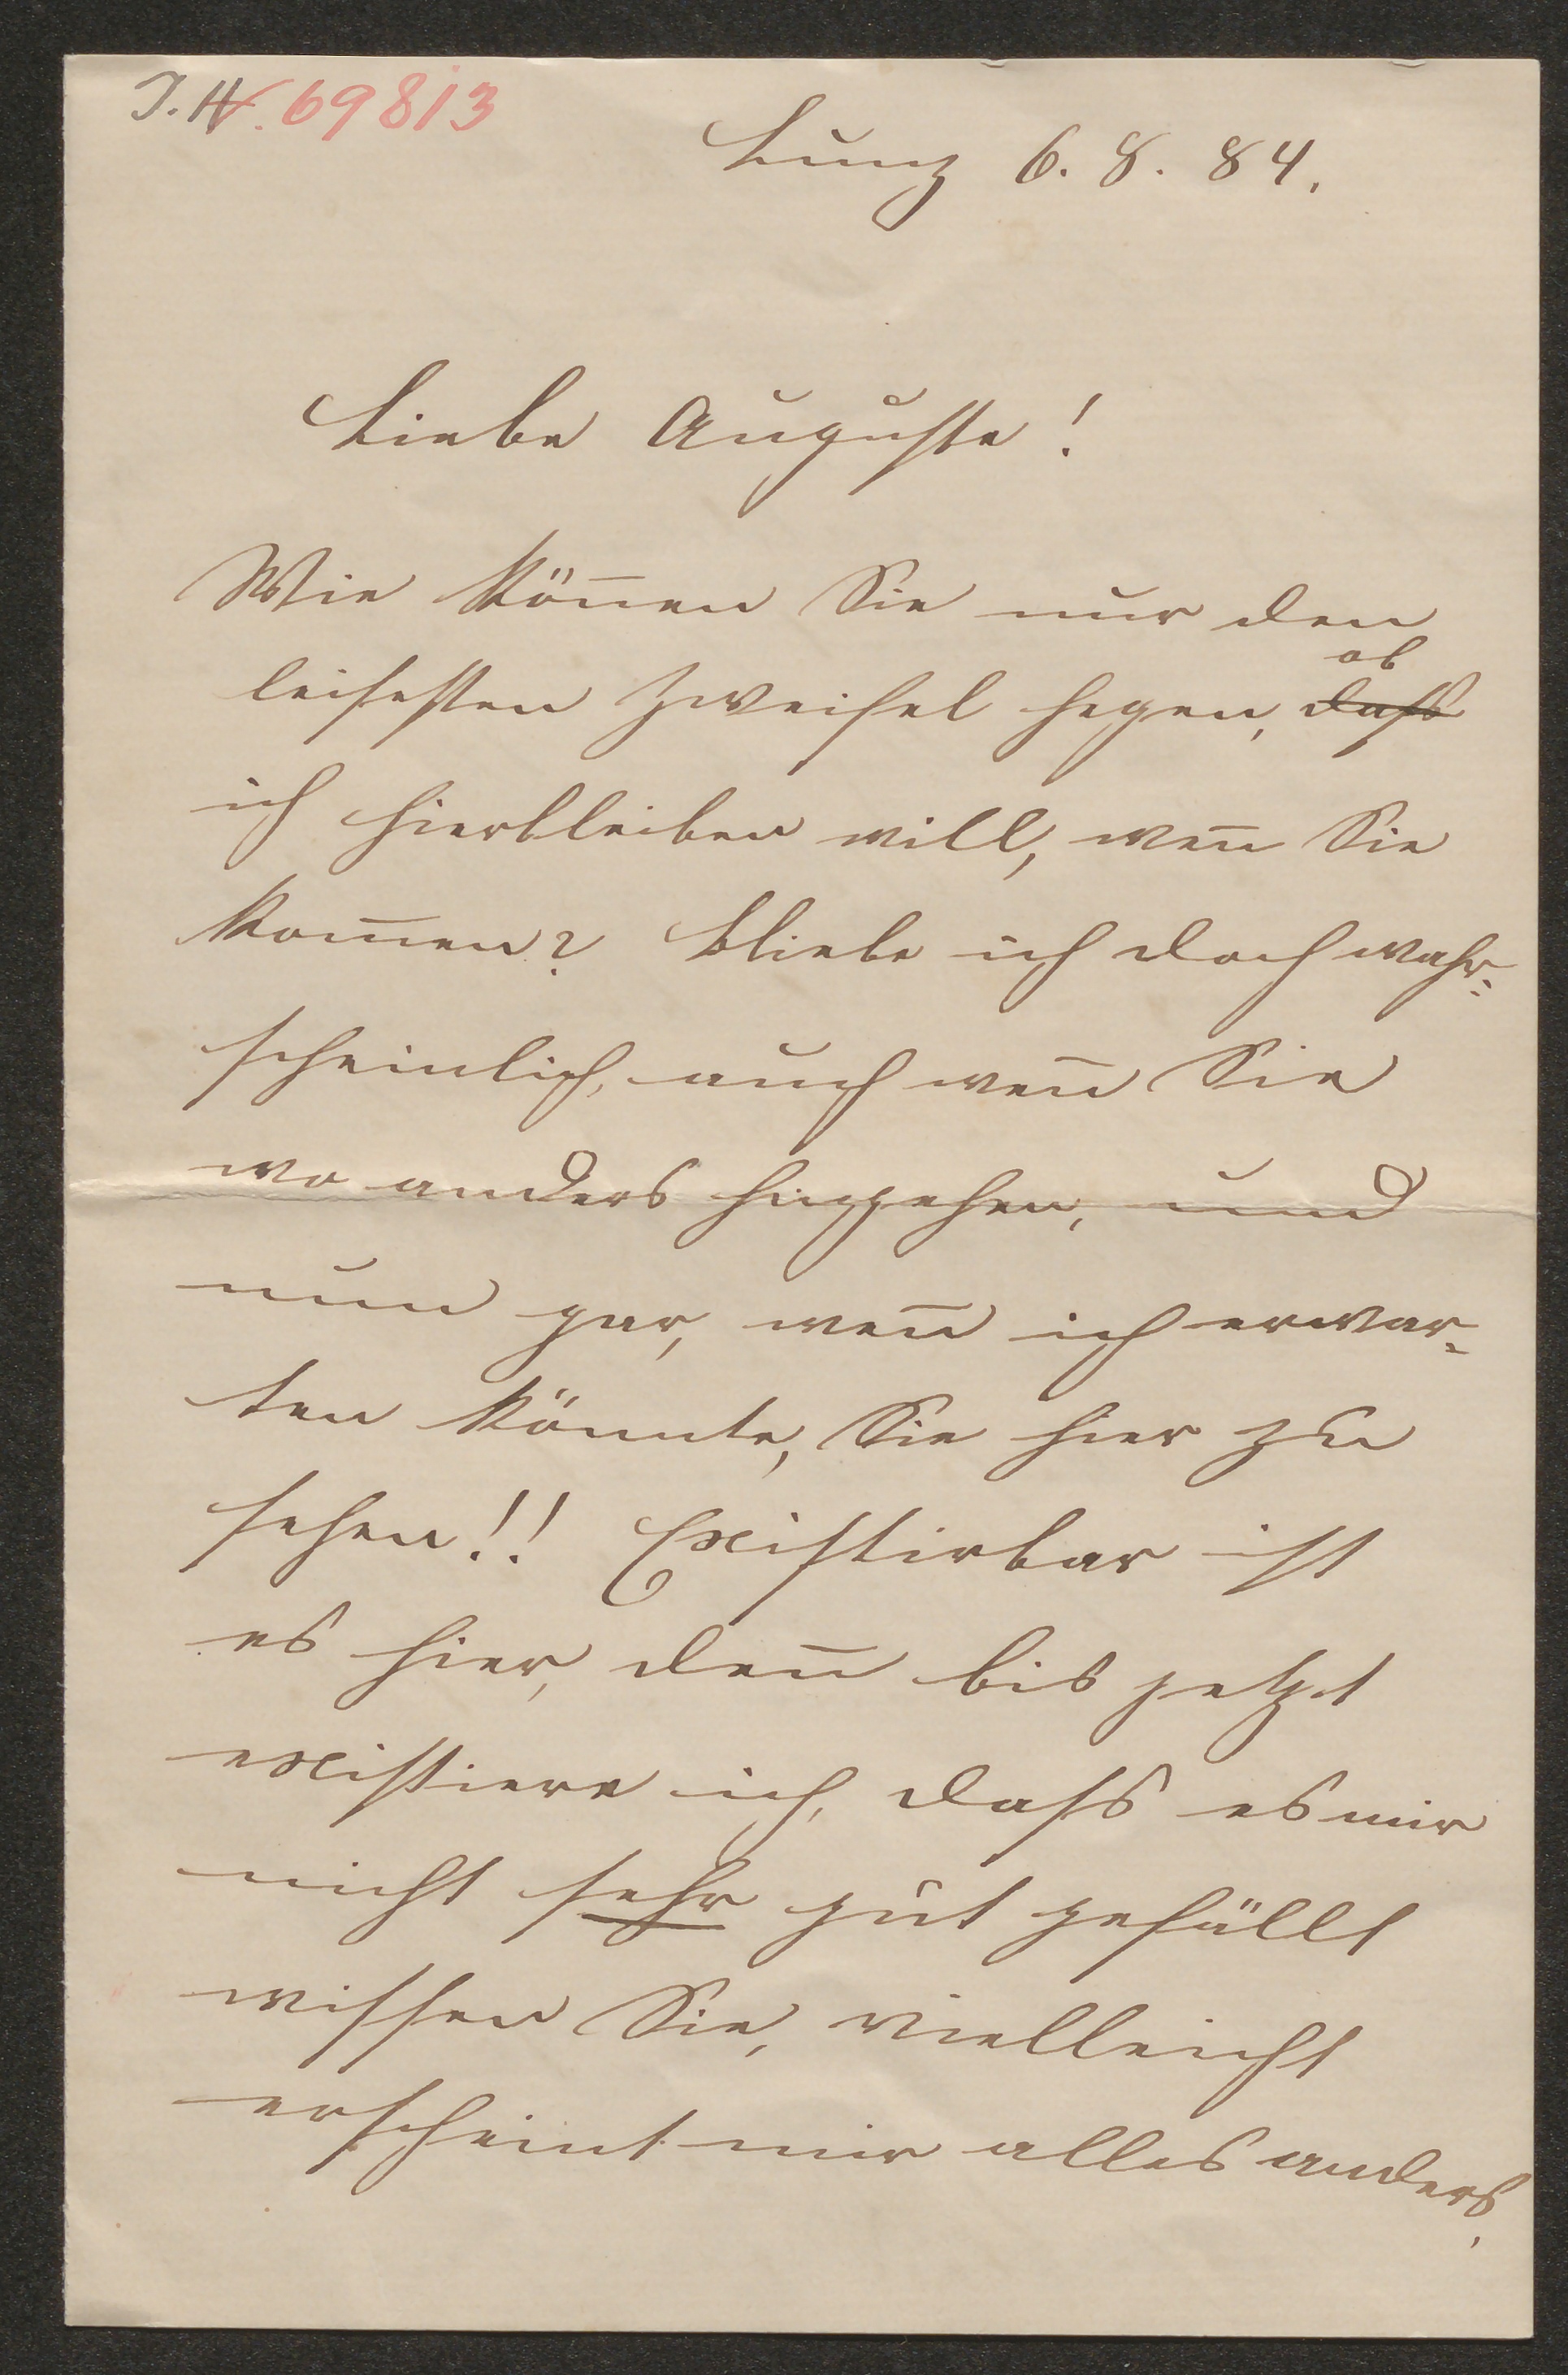 J.N. 69813
Lunz 6. 8. 84.
Liebe Auguste!
Wie kön̄en Sie nur den
ob
leisesten Zweifel hegen, dass
ich hierbleiben will, wen̄ Sie
kom̄en? Bliebe ich doch wahr-
scheinlich, auch wen̄ Sie
wo anders hingehen, und
nun gar, wen̄ ich erwar-
ten könnte, Sie hier zu
sehen!! Existirbar ist
es hier, den̄ bis jetzt
existiere ich, dass es mir
nicht sehr gut gefällt
wissen Sie, vielleicht
erscheint mir alles anders,